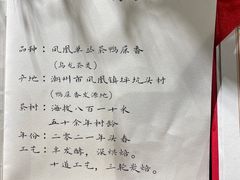 品种：凤凰单丛茶鸭屎香
（乌龙茶类）
产地：潮州市凤凰镇坪坑头村
（鸭屎香发源地）
茶树：海拔八百一十米
五十余年树龄
年份：二零二一年头春
工艺：半发酵，深烘焙。
十道工艺，三轮炭焙。